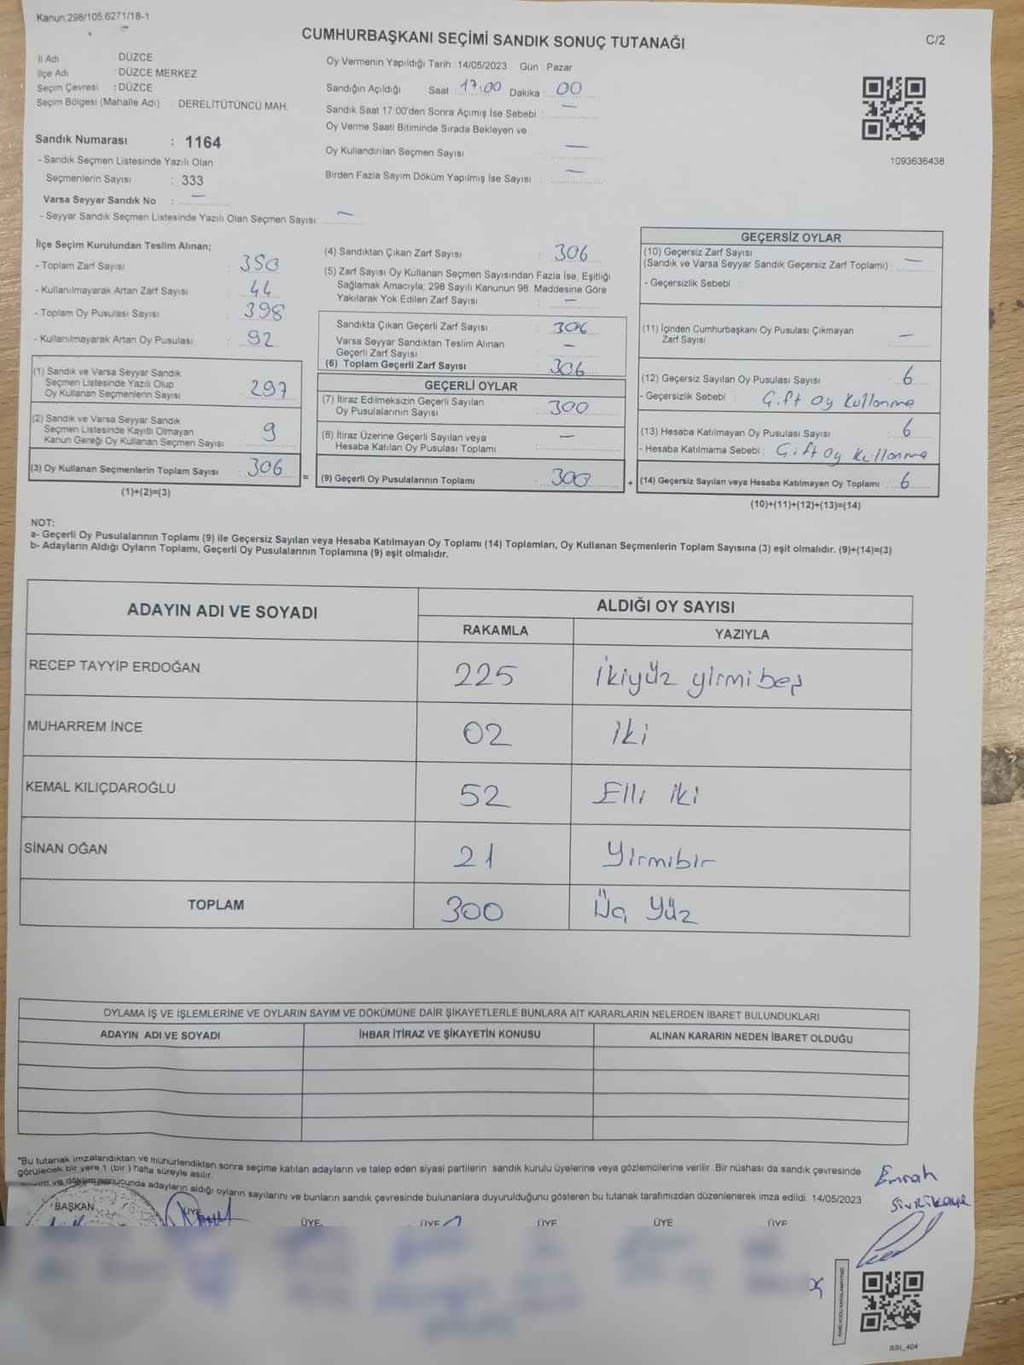 Kanun:298/105.6271/18-1
CUMHURBAŞKANI SEÇİMİ SANDIK SONUÇ TUTANAĞI
C/2
İl Adı DÜZCE
İlçe Adı : DÜZCE MERKEZ
Seçim Çevresi : DÜZCE
Seçim Bölgesi (Mahalle Adı) DERELİTÜTÜNCÜ MAH.
Sandık Numarası : 1164
- Sandık Seçmen Listesinde Yazılı Olan
Seçmenlerin Sayısı : 333
Varsa Seyyar Sandık No : —
- Seyyar Sandık Seçmen Listesinde Yazılı Olan Seçmen Sayısı: —
Oy Vermenin Yapıldığı Tarih :14/05/2023 Gün : Pazar
Sandığın Açıldığı Saat : 17:00 Dakika : 00
Sandık Saat 17:00'den Sonra Açımış İse Sebebi : —
Oy Verme Saati Bitiminde Sırada Bekleyen ve
Oy Kullandırılan Seçmen Sayısı —
Birden Fazla Sayım Döküm Yapılmış İse Sayısı : —
1093636438
İlçe Seçim Kurulundan Teslim Alınan;
- Toplam Zarf Sayısı : 350
- Kullanılmayarak Artan Zarf Sayısı : 44
- Toplam Oy Pusulası Sayısı : 398
- Kullanılmayarak Artan Oy Pusulası : 92
(1) Sandık ve Varsa Seyyar Sandık
Seçmen Listesinde Yazılı Olup
Oy Kullanan Seçmenlerin Sayısı : 297
(2) Sandık ve Varsa Seyyar Sandık
Seçmen Listesinde Kayıtlı Olmayan
Kanun Gereği Oy Kullanan Seçmen Sayısı : 9
(3) Oy Kullanan Seçmenlerin Toplam Sayısı : 306
(1)+(2)=(3)
(4) Sandıktan Çıkan Zarf Sayısı : 306
(5) Zarf Sayısı Oy Kullanan Seçmen Sayısından Fazla İse, Eşitliği
Sağlamak Amacıyla; 298 Sayılı Kanunun 98. Maddesine Göre
Yakılarak Yok Edilen Zarf Sayısı : —
Sandıkta Çıkan Geçerli Zarf Sayısı : 306
Varsa Seyyar Sandıktan Teslim Alınan
Geçerli Zarf Sayısı : —
(6) Toplam Geçerli Zarf Sayısı : 306
GEÇERLİ OYLAR
(7) İtiraz Edilmeksizin Geçerli Sayılan
Oy Pusulalarının Sayısı : 300
(8) İtiraz Üzerine Geçerli Sayılan veya
Hesaba Katılan Oy Pusulaları Toplamı : —
= (9) Geçerli Oy Pusulalarının Toplamı : 300
GEÇERSİZ OYLAR
(10) Geçersiz Zarf Sayısı
(Sandık ve Varsa Seyyar Sandık Geçersiz Zarf Toplamı) : —
- Geçersizlik Sebebi :
(11) İçinden Cumhurbaşkanı Oy Pusulası Çıkmayan
Zarf Sayısı : —
(12) Geçersiz Sayılan Oy Pusulası Sayısı : 6
- Geçersizlik Sebebi : Çift Oy Kullanma
(13) Hesaba Katılmayan Oy Pusulası Sayısı : 6
- Hesaba Katılmama Sebebi : Çift Oy Kullanma
+ (14) Geçersiz Sayılan veya Hesaba Katılmayan Oy Toplamı : 6
(10)+(11)+(12)+(13)=(14)
NOT:
a- Geçerli Oy Pusulalarının Toplamı (9) ile Geçersiz Sayılan veya Hesaba Katılmayan Oy Toplamı (14) Toplamları, Oy Kullanan Seçmenlerin Toplam Sayısına (3) eşit olmalıdır. (9)+(14)=(3)
b- Adayların Aldığı Oyların Toplamı, Geçerli Oy Pusulalarının Toplamına (9) eşit olmalıdır.
ADAYIN ADI VE SOYADI
ALDIĞI OY SAYISI
RAKAMLA YAZIYLA
RECEP TAYYİP ERDOĞAN 225 ikiyüz yirmibeş
MUHARREM İNCE 02 iki
KEMAL KILIÇDAROĞLU 52 Elli iki
SİNAN OĞAN 21 Yirmibir
TOPLAM 300 Üç Yüz
OYLAMA İŞ VE İŞLEMLERİNE VE OYLARIN SAYIM VE DÖKÜMÜNE DAİR ŞİKAYETLERLE BUNLARA AİT KARARLARIN NELERDEN İBARET BULUNDUKLARI
ADAYIN ADI VE SOYADI İHBAR İTİRAZ VE ŞİKAYETİN KONUSU ALINAN KARARIN NEDEN İBARET OLDUĞU
"Bu tutanak imzalandıktan ve mühürlendikten sonra seçime katılan adayların ve talep eden siyasi partilerin sandık kurulu üyelerine veya gözlemcilerine verilir. Bir nüshası da sandık çevresinde
görülecek bir yere 1 (bir) hafta süreyle asılır.
sonucunda adayların aldığı oyların sayılarını ve bunların sandık çevresinde bulunanlara duyurulduğunu gösteren bu tutanak tarafımızdan düzenlenerek imza edildi. 14/05/2023
Emrah
Sivrikaya
BAŞKAN ÜYE ÜYE ÜYE ÜYE ÜYE ÜYE
SSI_404